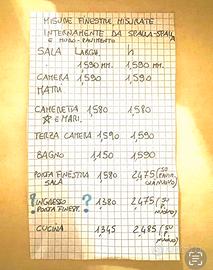 MISURE FINESTRE, MISURATE
INTERNAMENTE DA SPALLA-SPALLA
E MURO-PAVIMENTO
SALA LARGH. h
1,590 mm. 1,590 mm.
CAMERA 1,590 1,590
MATRI
CAMERETTA 1,580 1,580
☆ e MARI.
TERZA CAMERA 1,590 1,590
BAGNO 1,150 1,590
PORTA FINESTRA 1580 2475
SALA
! INGRESSO ? 1380 2,475
PORTA FINEST.
CUCINA 1'345 2,485